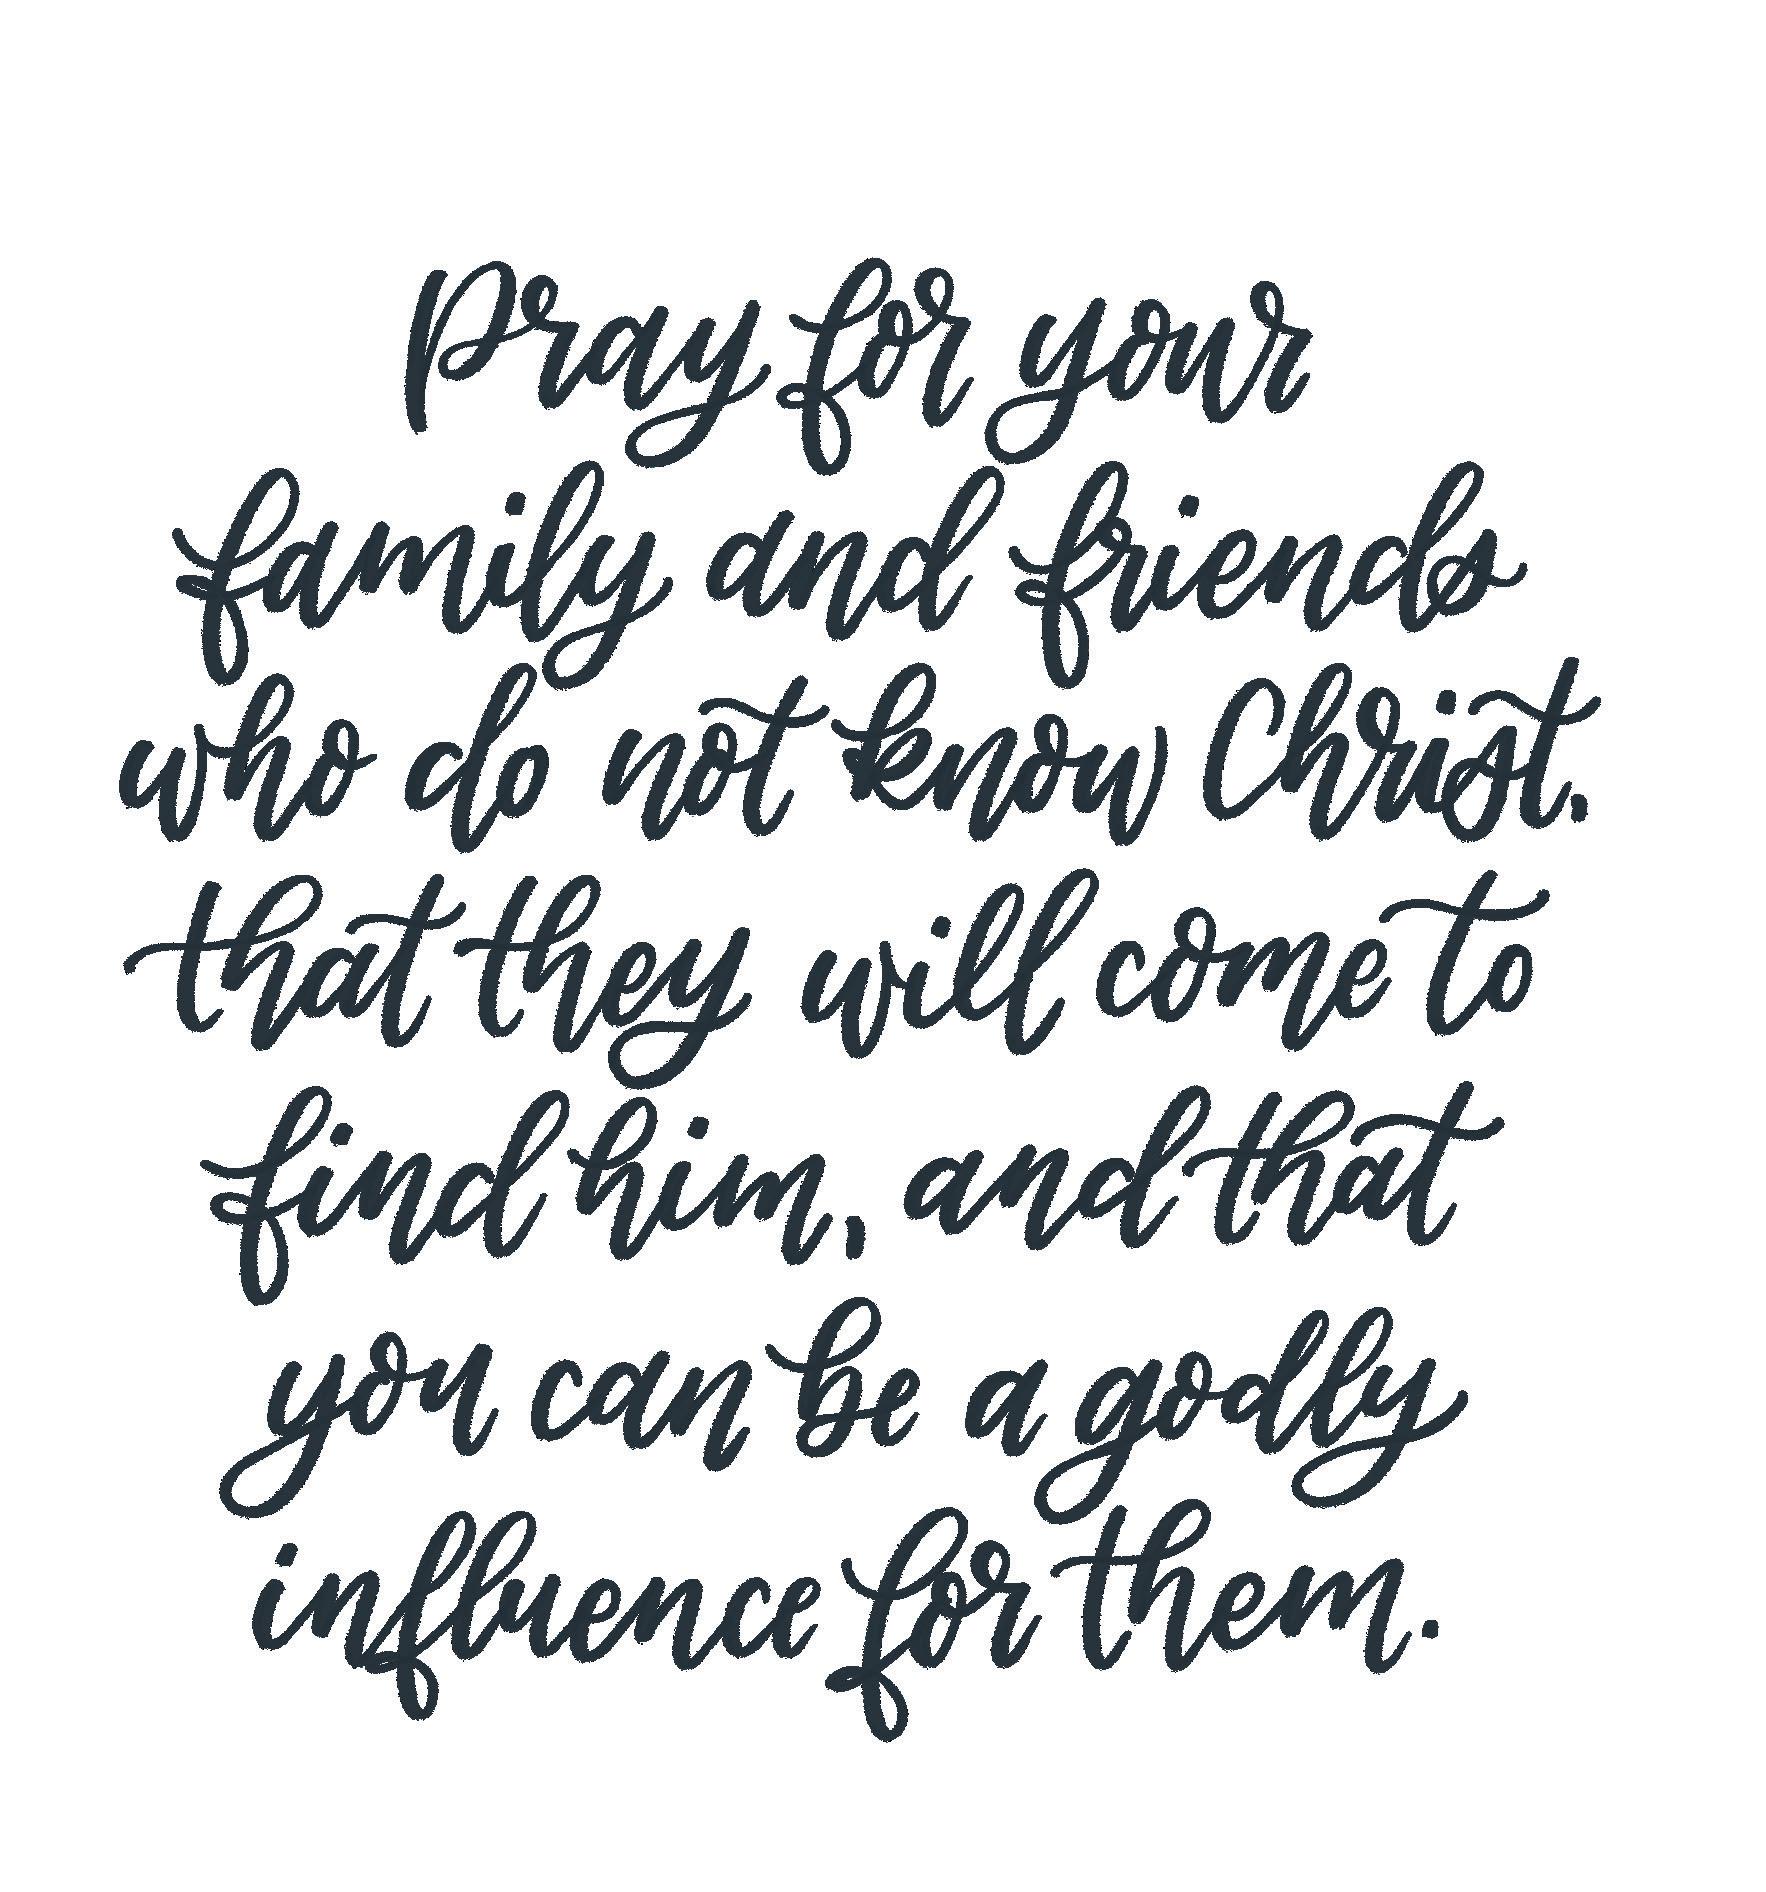 Pray for your
family and friends
who do not know Christ,
that they will come to
find him, and that
you can be a godly
influence for them.